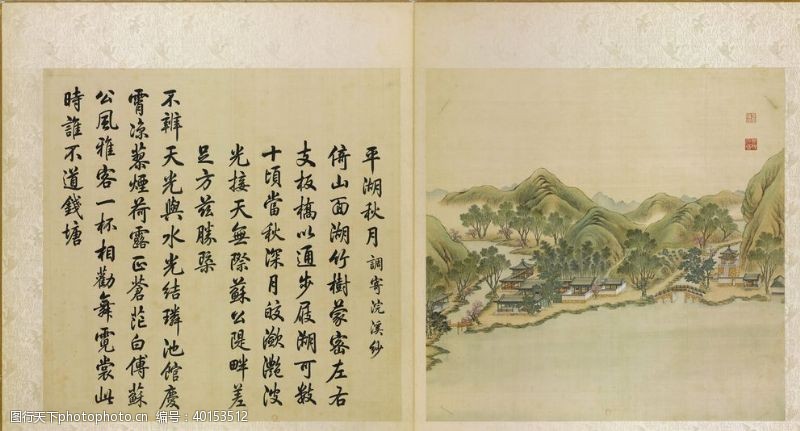 平湖秋月 調寄浣溪紗
倚山面湖竹樹蒙密左右
支板橋以通步屧湖可數
十頃當秋深月皎瀲灩波
光接天無際蘇公隄畔差
足方茲勝槩
不辨天光與水光結璘池館慶
霄涼蓼煙荷露正蒼茫白傅蘇
公風雅客一杯相勸舞霓裳此
時誰不道錢塘
图行天下photophoto.cn 编号:40153512